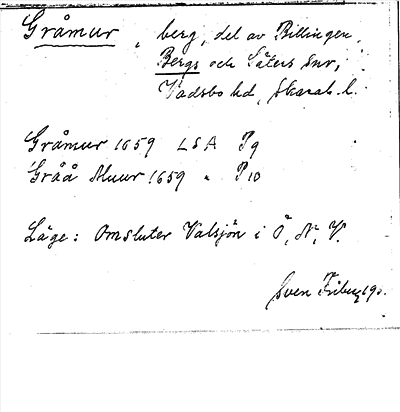 Gråmur, berg, del av Billingen,
Bergs och Säters snr,
Vadsbo hd, Skarab. l.
Gråmur 1659 LSA P9
Gråå Muur 1659 " P10
Läge: Omsluter Valsjön i Ö, N, V.
Sven